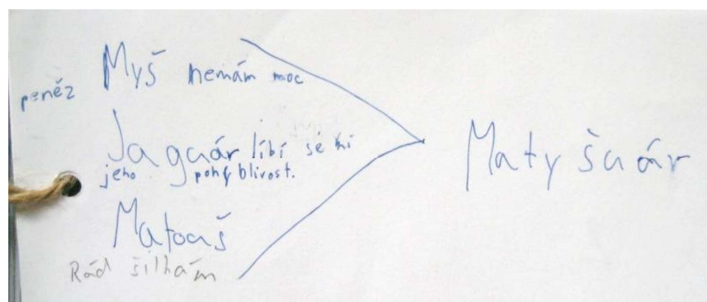 Myš nemám moc
peněz
Jaguár líbí se mi
jeho pohyblivost.
Matoaš
Rád šilhám
Matyšuár